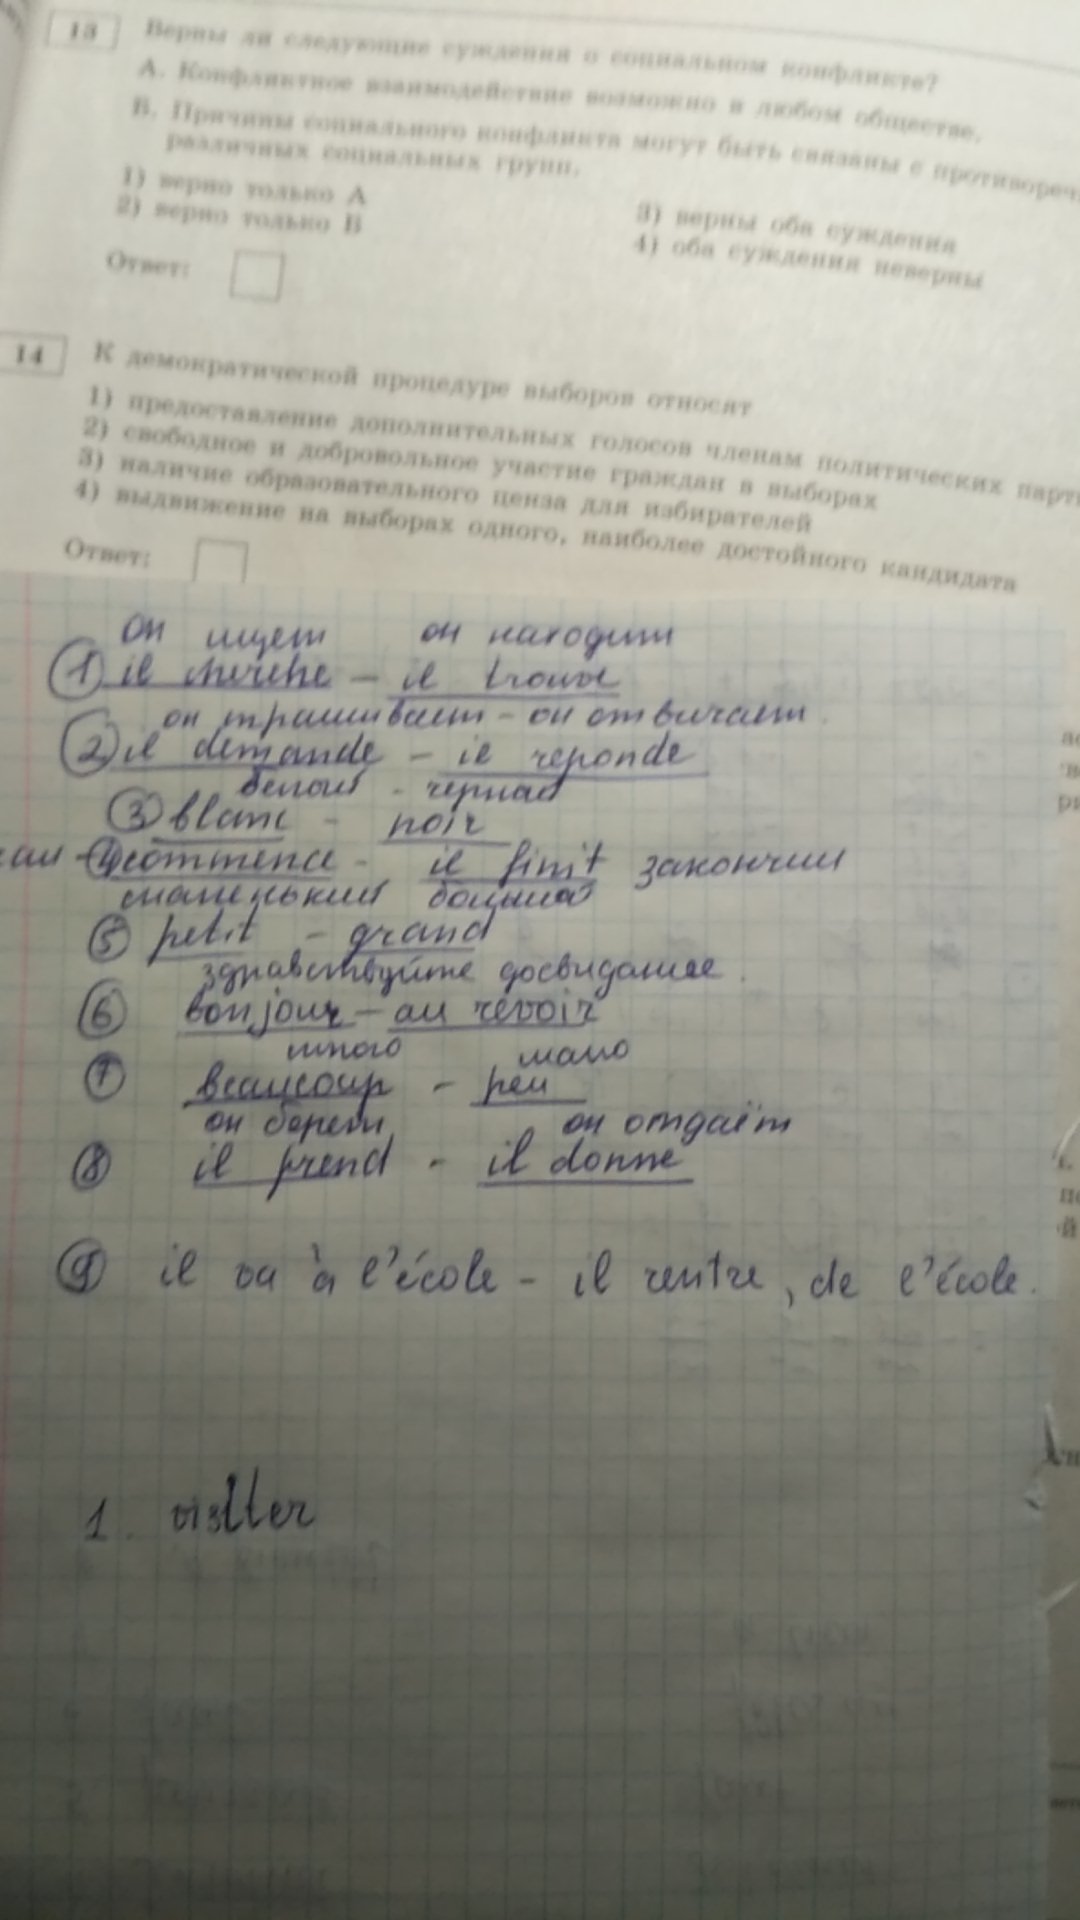 13 Верны ли следующие суждения о социальном конфликте?
А. Конфликтное взаимодействие возможно в любом обществе.
Б. Причины социального конфликта могут быть связаны с противореч
различных социальных групп.
1) верно только А
2) верно только Б
3) верны оба суждения
4) оба суждения неверны
Ответ:
14 К демократической процедуре выборов относят
1) предоставление дополнительных голосов членам политических парт
2) свободное и добровольное участие граждан в выборах
3) наличие образовательного ценза для избирателей
4) выдвижение на выборах одного, наиболее достойного кандидата
Ответ:
он ищет он находит
1 il cherche – il trouve
он – он отвичает.
2 il demande – il reponde
белый - черный
3 blanc - noir
4 commence - il finit закончил
маленький большой
5 petit - grand
здравствуйте досвидание.
6 bonjour – au revoir
много мало
7 beaucoup - peu
он берет он отдаёт
8 il prend - il donne
9 il va à l'école - il rentre, de l'école.
1.